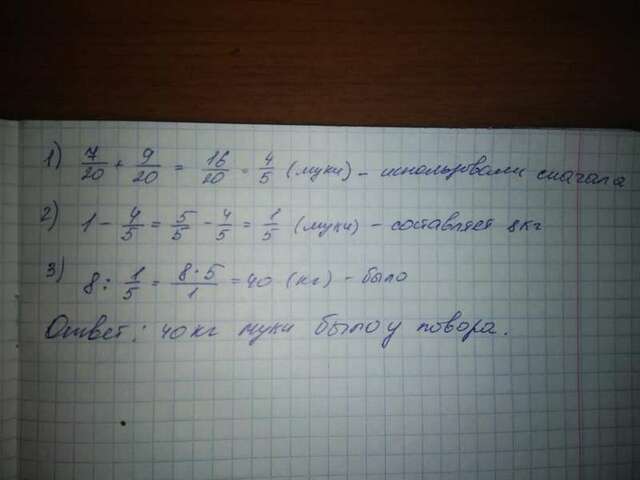 1) 7/20 + 9/20 = 16/20 = 4/5 (муки) - использовали сначала
2) 1 - 4/5 = 5/5 - 4/5 = 1/5 (муки) - составляет 8кг
3) 8 : 1/5 = 8·5/1 = 40 (кг) - было
Ответ: 40кг муки было у повора.